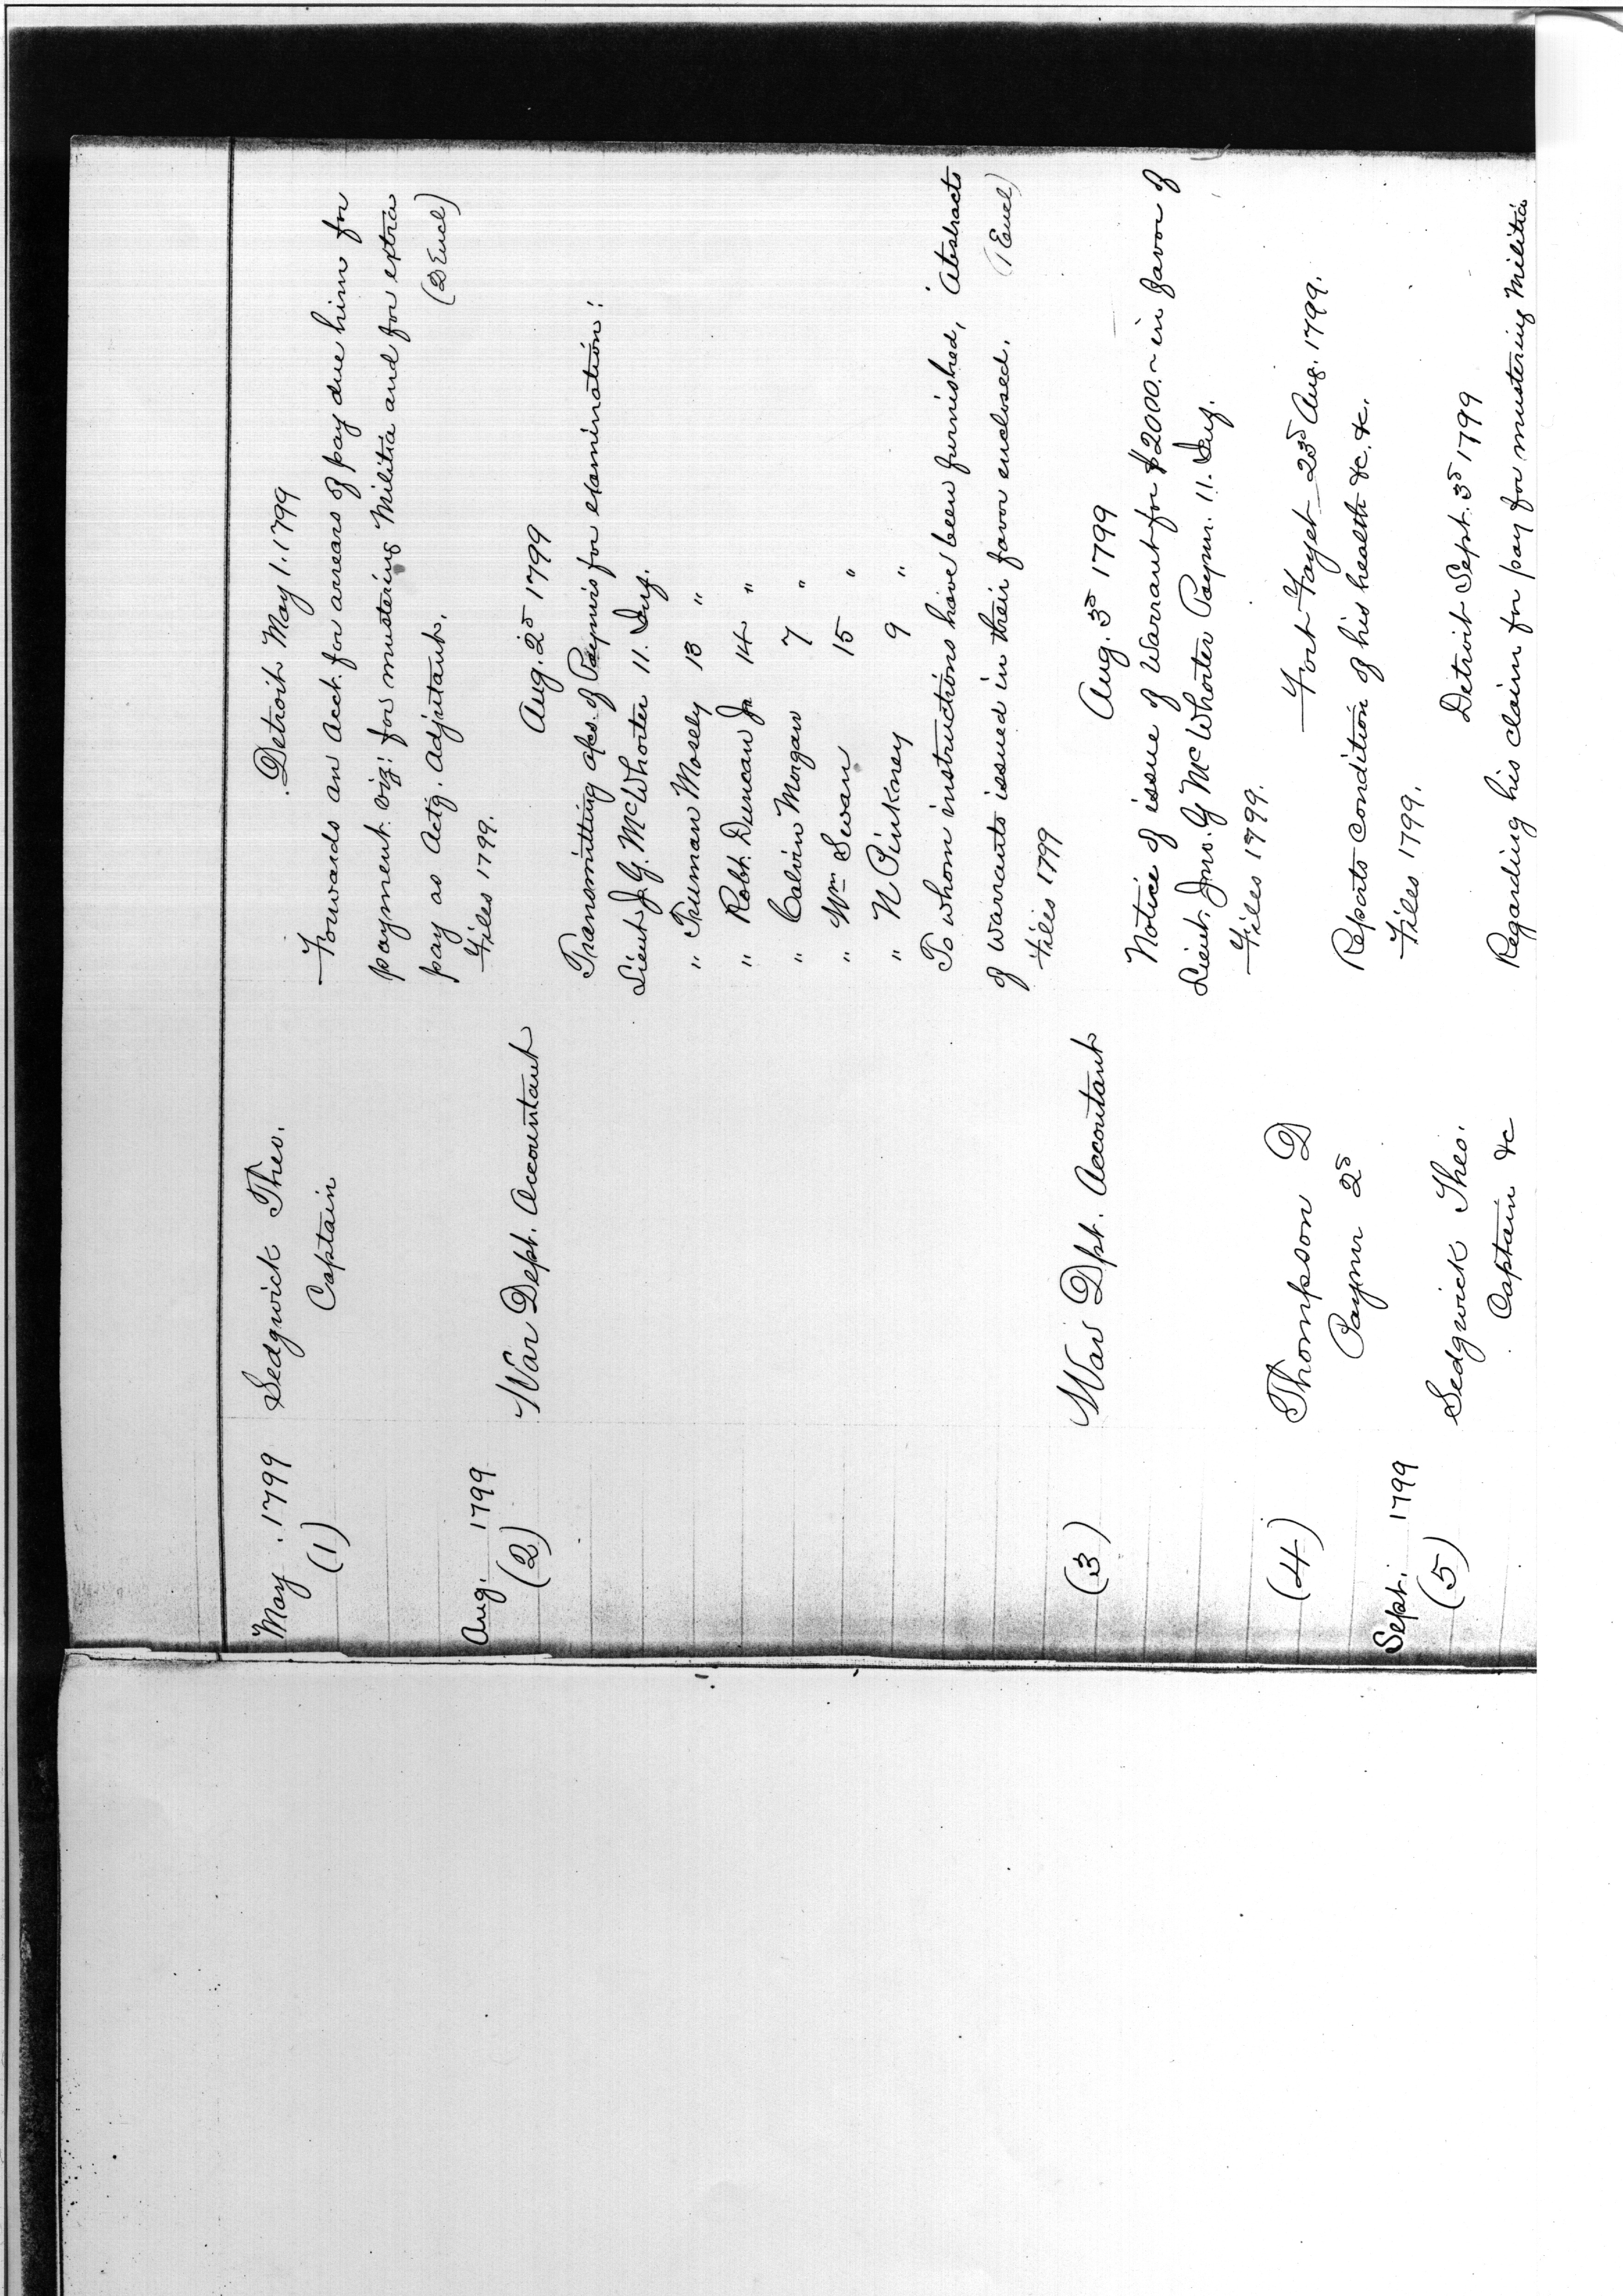 May 1799 Sedgwick Theo. Detroit May 1. 1799
(1) Captain Forwards an Acct. for arrears of pay due him for
payment. viz: for mustering Militia and for extra
pay as Actg. Adjutant. (2 Encl)
Files 1799.
Aug. 1799
(2) War Dept. Accountant Aug. 2d 1799
Transmitting a/cs. of Paymrs for examination:
Lieut J. G. McWhorter 11. Inf.
" Truman Mosely 13 "
" Robt. Duncan Jr 14 "
" Calvin Morgan 7 "
" Wm Swan 15 "
" N Pinkney 9 "
To whom instructions have been furnished, Abstracts
of warrants issued in their favor enclosed. (1 Encl)
Files 1799
(3) War Dpt. Accountant Aug. 3d 1799
Notice of issue of Warrant for $2000.~ in favor of
Lieut. Jno. G McWhorter Paymr. 11. Inf.
Files 1799.
(4) Thompson D Fort Fayet 23d Aug. 1799.
Paymr 2d Reports condition of his health &c. &c.
Files 1799.
Sept. 1799
(5) Sedgwick Theo. Detroit Sept. 3d 1799
Captain &c Regarding his claim for pay for mustering Militia